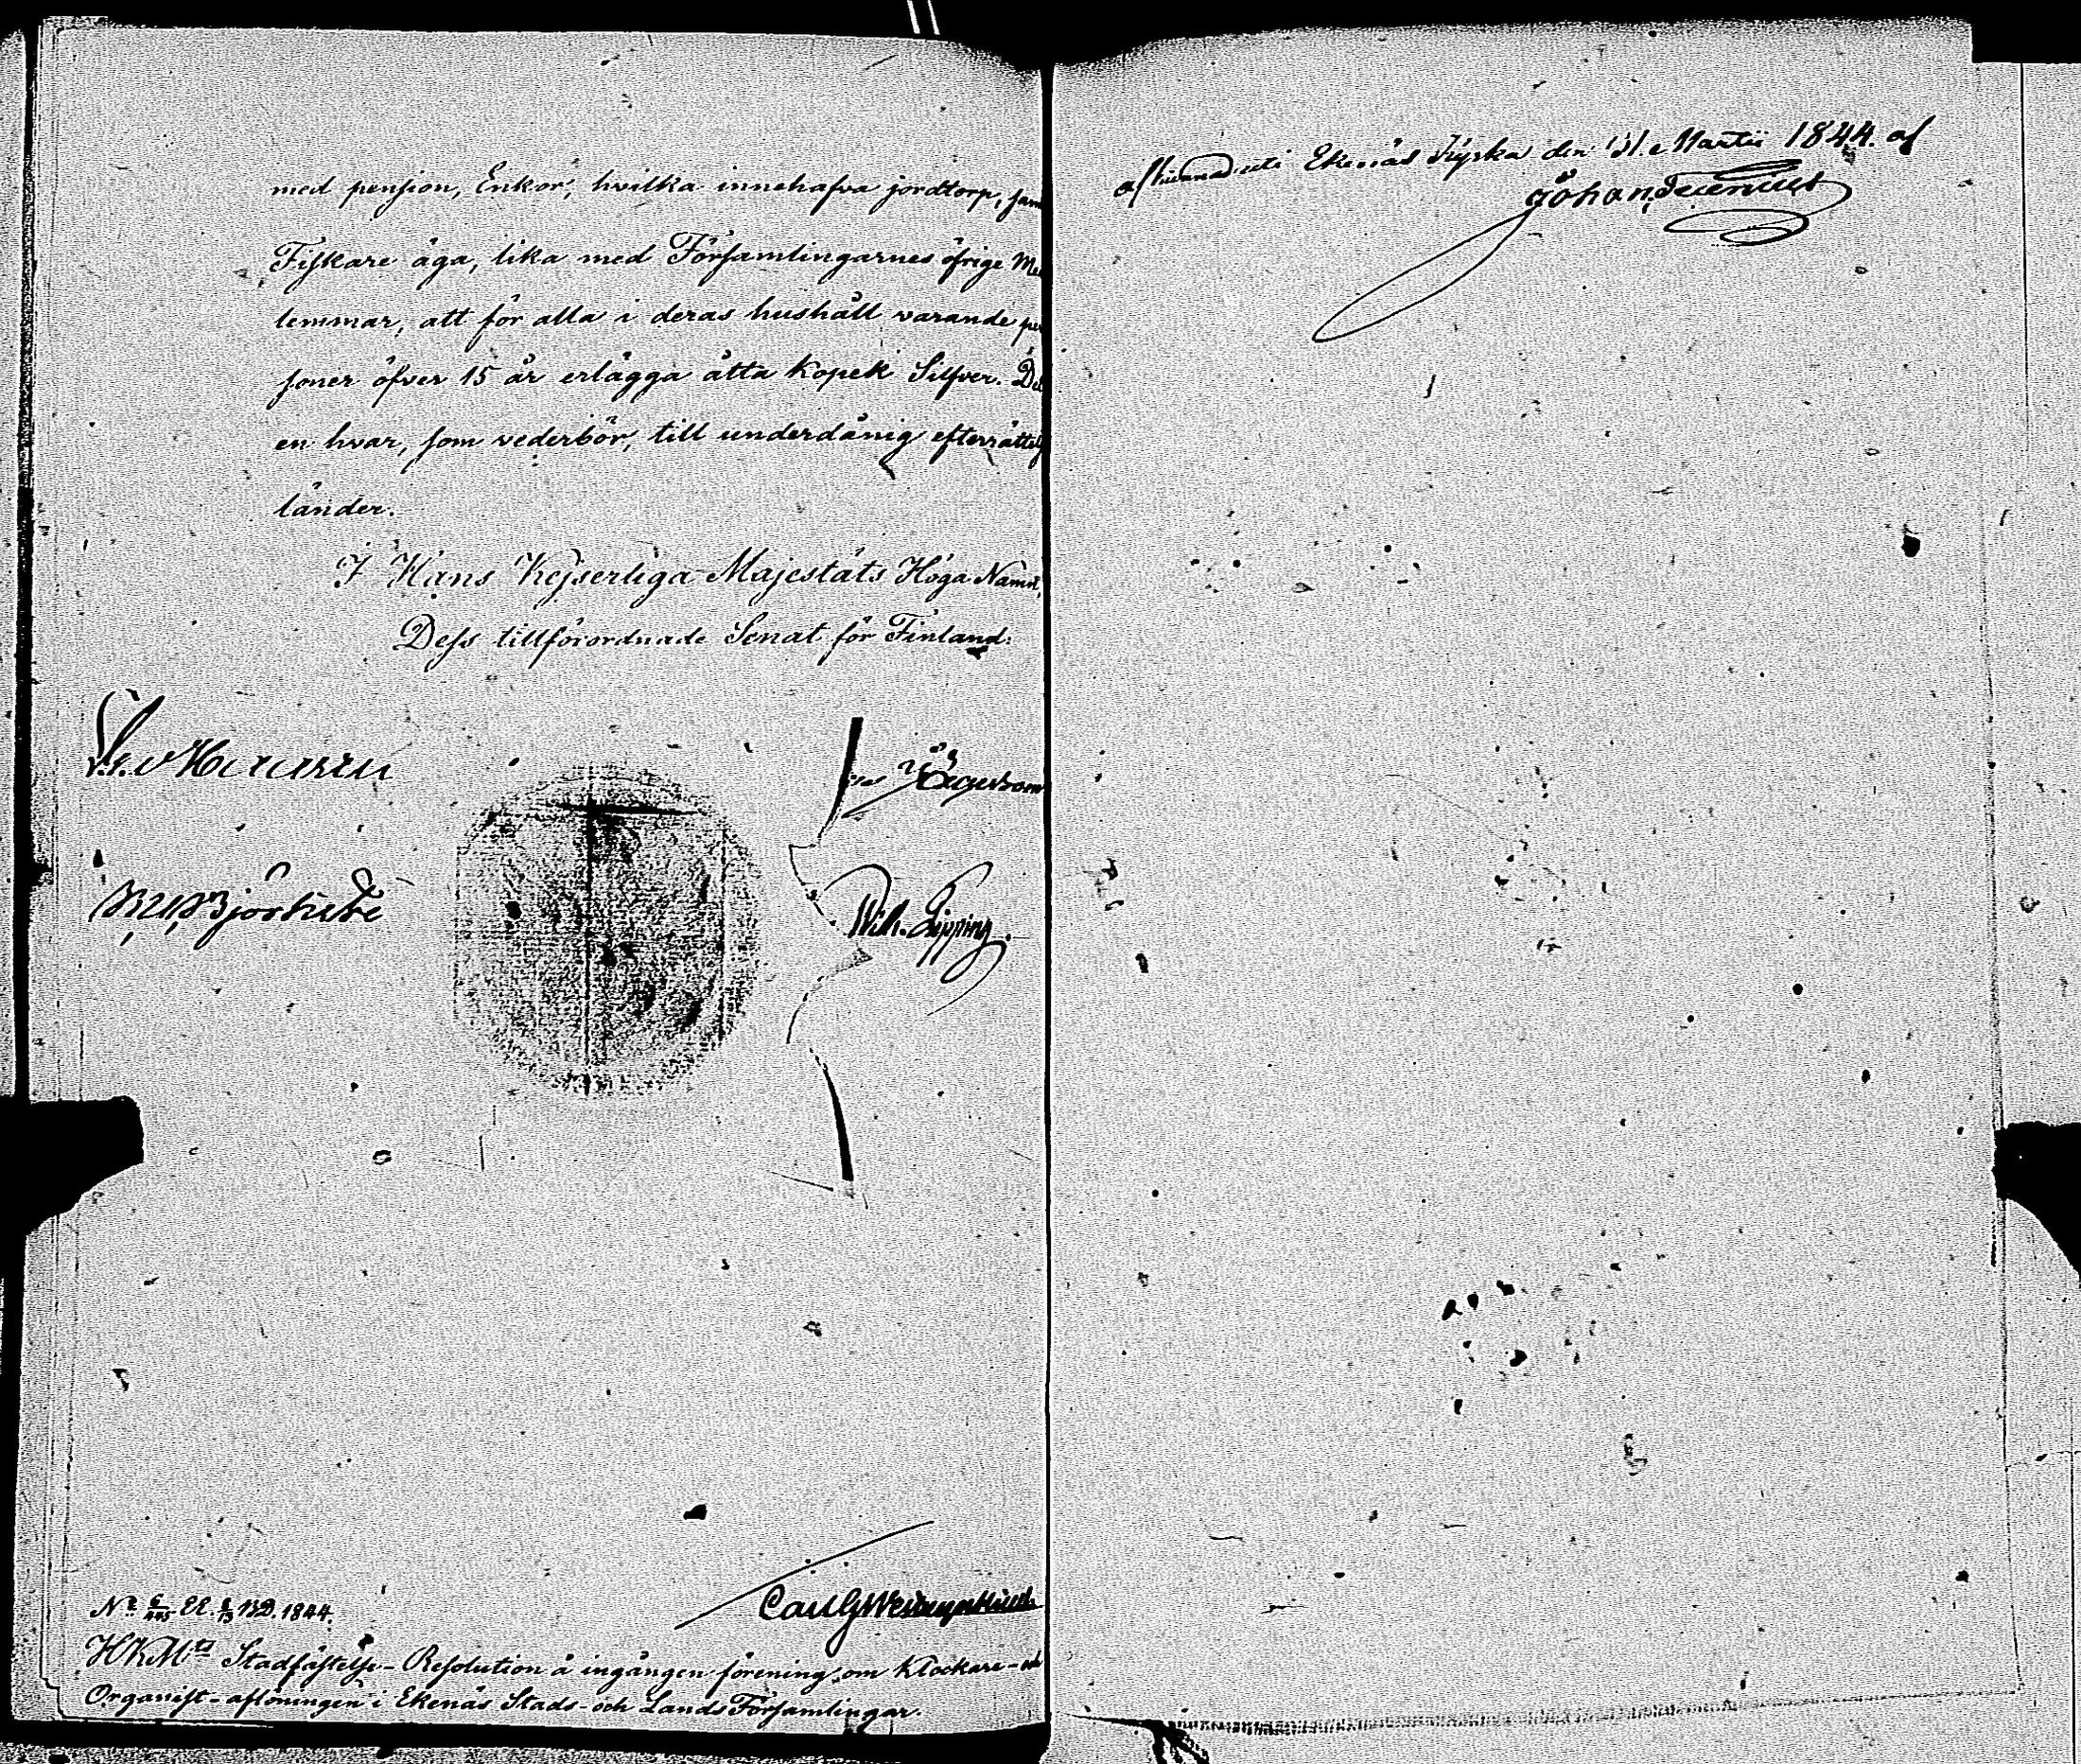 med pension, Enkor, hvilka innehafva jordtorp, sam
Fiskare äga, lika med Församlingarnes öfrige Me
lemmar, att för alla i deras hushåll varande per
soner öfver 15 år erlägga åtta Kopek Silfver. De
en hvar, som vederbör, till underdånig efterrättels
länder.
I Hans Kejserliga Majestäts Höga Namn,
Dess tillförordnade Senat för Finland:
Wilh. Zipping.
EE. BD. 1844.
HKMts Stadfästelse-Resolution å ingången förening om Klockare- och
Organist-aflöningen i Ekenäs Stads- och Lands Församlingar.
Ekenäs Kyrka den 31. Martii 1844. af
Johan